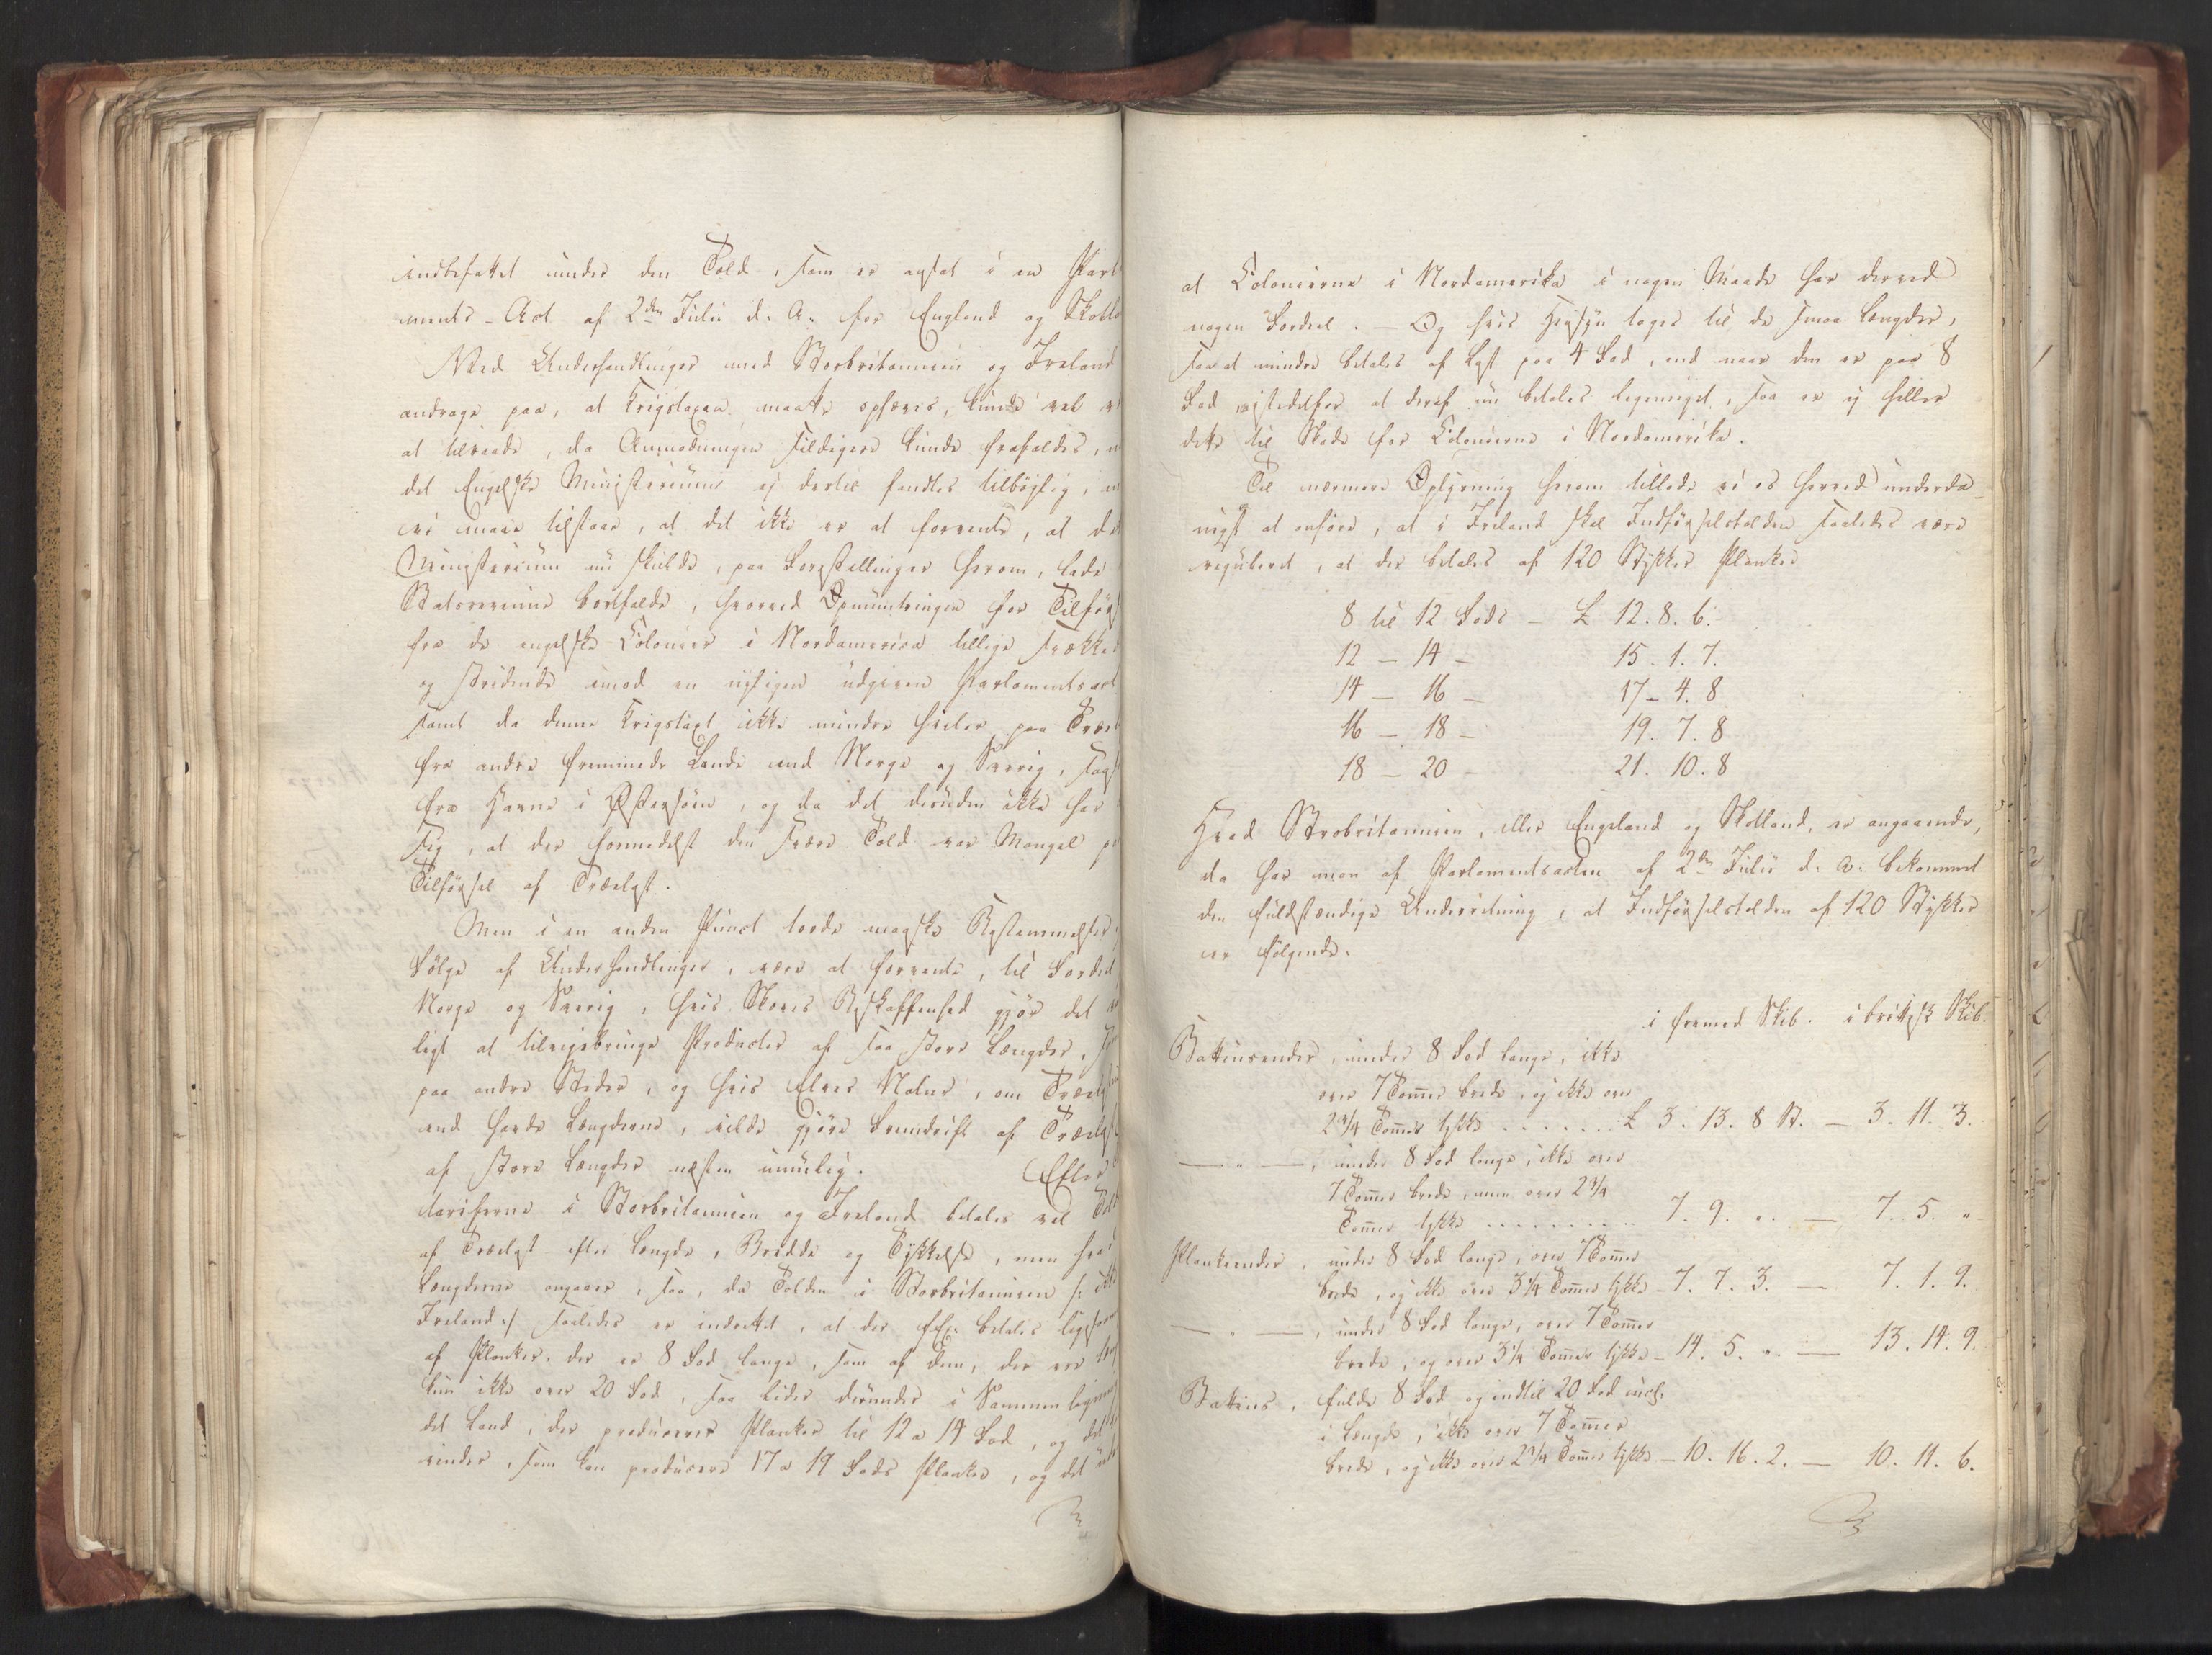 indbefattet under den Told, som er ansat i en Parl
ments-Act af 2den Julii d: A: for England og Skotl
Ved Underhandlinger med Storbritannien og Ireland
andrage paa, at Krigstaxen maatte ophæves, kunde vel
at tilraade, da Anmodningen sildigere kunde frafaldes,
det Engelske Ministerium ej dertil fandtes tilbøjelig,
vi maae tilstaae, at det ikke er at forvente, at d
Ministerium nu skulde, paa Forestillinger herom, lade
Statsrevenue bortfalde, hvorved Opmuntringen for Tilførs
fra de engelske Colonier i Nordamerica tillige svækkes
og stridende imod en nyligen udgiven Parlamentsact
samt da denne Krigstaxt ikke mindre hviler paa Træl
fra andre fremmede Lande end Norge og Sverrig, saas
fra Havne i Østersøen, og da det desuden ikke har
sig, at der formedelst den svære Told var Mangel p
Tilførsel af Trælast.
Men i en anden Punct torde maaske Bestemmelser
Følge af Underhandlinger, være at forvente, til Fordeel
Norge og Sverrig, hvis Skoves Beskaffenhed gjør det
ligt at tilvejebringe Producter af saa store Længder,
paa andre Steder, og hvis Elves Natur, om Træerne
end havde Længderne, vilde gjøre Fremdrift af Trælast
af store Længder næsten umuelig. Efter
tarifferne i Storbritannien og Irland betales vel Told
af Trælast efter Længde, Bredde og Tykkelse, men hvad
Længderne angaaer, saa, da Tolden i Storbritannien /: ikke
Ireland :/ saaledes er indrettet, at der f Ex: betales ligesaa
af Planker, der er 8 Fod lange, som af dem, der ere
kun ikke over 20 Fod, saa lider derunder i Sammenlign
det Land, der producerer Planker til 12 a 14 Fod, og det
vinder, som kan producere 17 a 19 Fods Planker, og det
at Colonierne i Nordamerika i nogen Maade har derved
nogen Fordeel. – Og hvis Hensyn toges til de smaa Længder,
saa at mindre betales af Last paa 4 Fod, end naar den er paa 8
Fod istedetfor at deraf nu betales ligemeget, saa er ej heller
dette til Skade for Colonierne i Nordamerika.
Til nærmere Oplysning herom tillade vi os herved underda-
nigst at anføre, at i Irland skal Indførselstolden saaledes være
reguleret, at der betales af 120 Stykker Planker
8 til 12 Fods – £ 12. 8. 6.
12 – 14 – 15. 1. 7.
14 – 16 – 17. 4. 8
16 – 18 – 19. 7. 8
18 – 20 – 21. 10. 8
Hvad Strobritannien, eller England og Skotland, er angaaende,
da har man af Parlamentsacten af 2den Julii d: A: bekommet
den fuldstændige Underretning, at Indførselstolden af 120 Stykker
er følgende.
i fremed Skib. i brittisk Skib.
Battinsender, under 8 Fod lange, ikke
over 7 Tommer brede, og ikke over
2 3/4 Tommer tykke . . . . . . £ 3. 13. 8 St. – 3. 11. 3.
— " —, under 8 Fod lange, ikke over
7 Tommer brede, men over 2 3/4
Tommer tykke . . . . . . . . . 7. 9. ". — 7. 5. "
Plankeender, under 8 Fod lange, over 7 Tommer
brede, og ikke over 3 1/4 Tommer tykke – 7. 7. 3. — 7. 1. 9.
— " —, under 8 Fod lange, over 7 Tommer
brede, og over 3 1/4 Tommer tykke – 14. 5. ". — 13. 14. 9.
Battins, fulde 8 Fod og indtil 20 Fod incl.
i Længde, ikke over 7 Tommer
brede, og ikke over 2 3/4 Tommer tykke – 10. 16. 2. — 10. 11. 6.